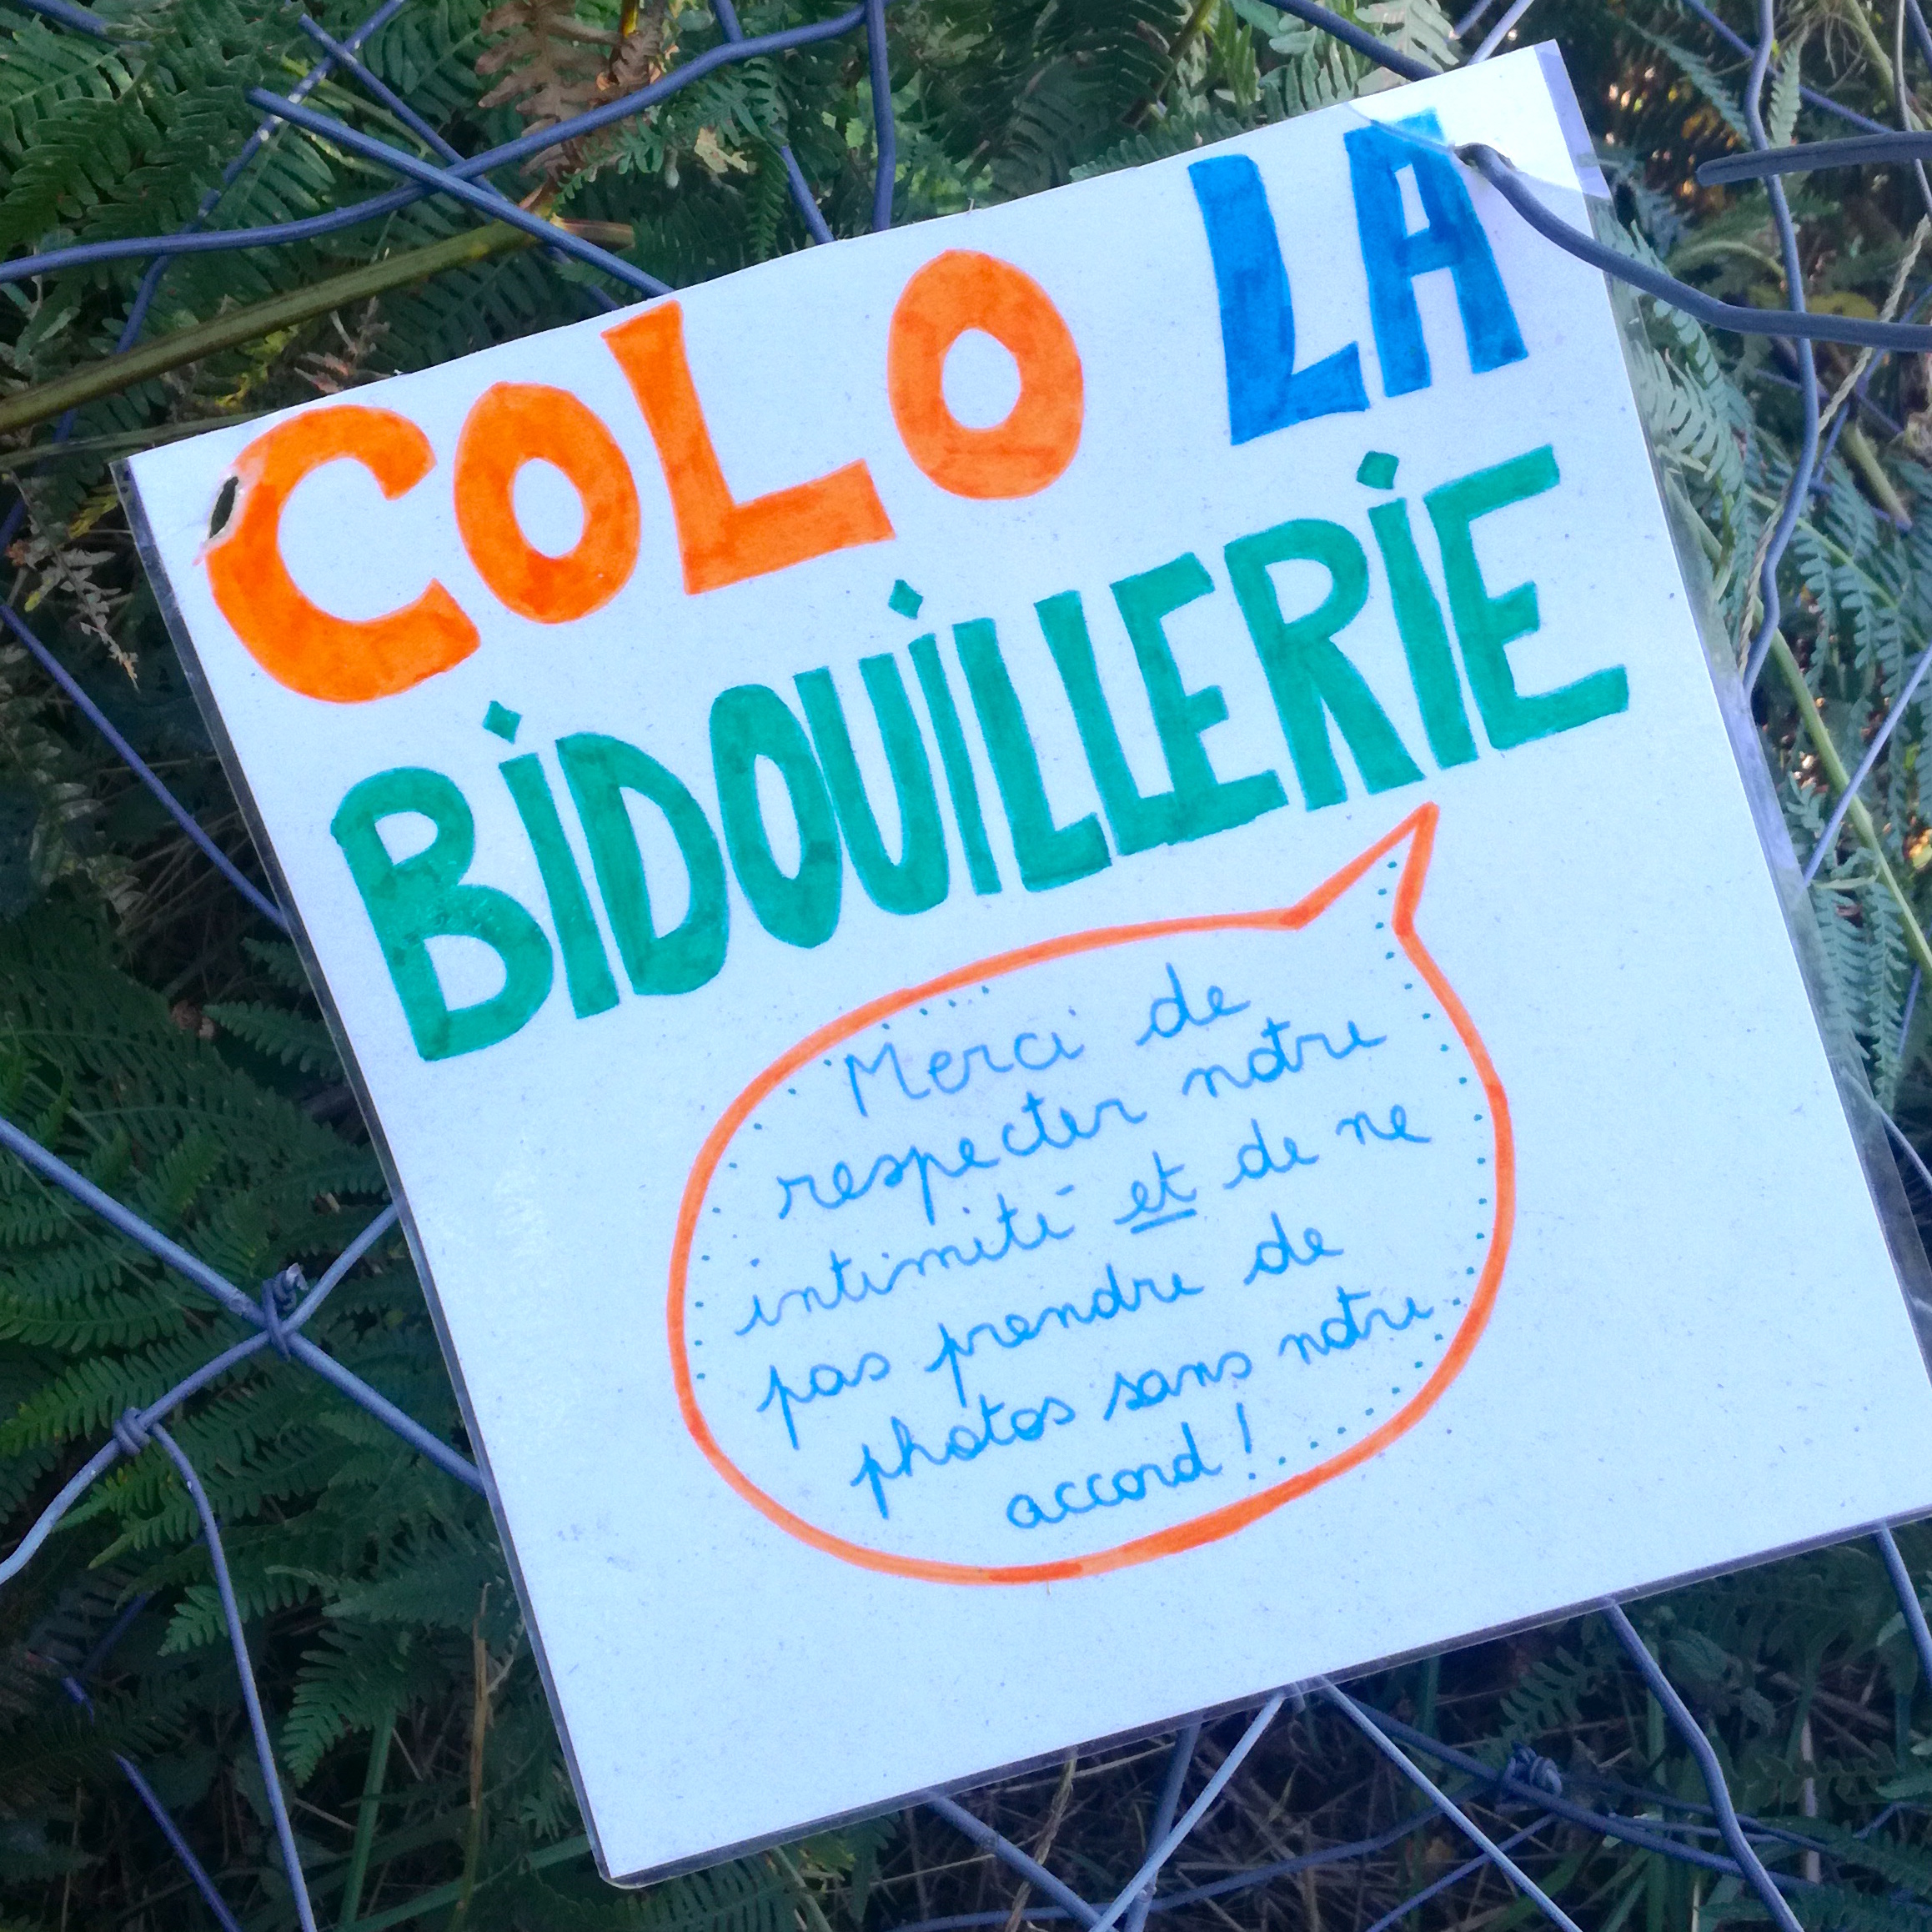 COLO LA
BIDOUILLERIE
Merci de
respecter notre
intimité et de ne
pas prendre de
photos sans notre
accord !